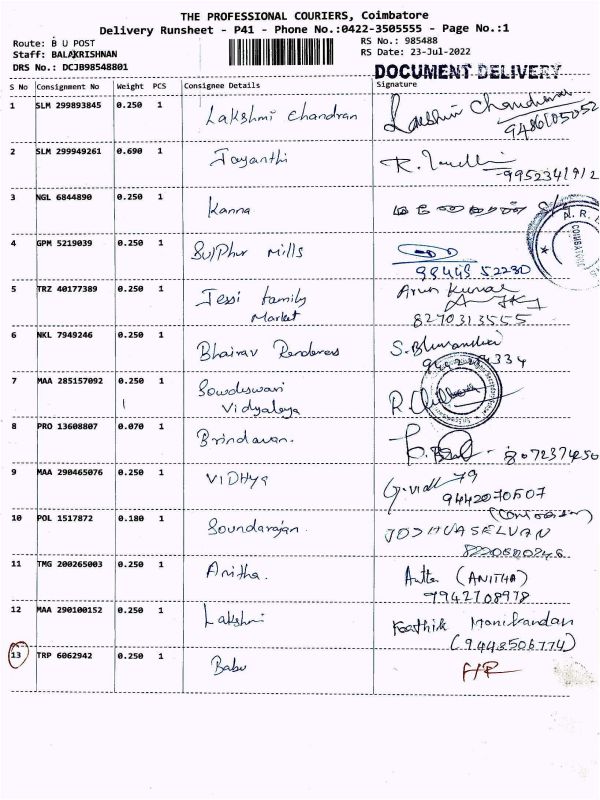 THE PROFESSIONAL COURIERS, Coimbatore
Delivery Runsheet - P41 - Phone No.:0422-3505555 - Page No.:1
Route: B U POST RS No.: 985488
Staff: BALAKRISHNAN RS Date: 23-Jul-2022
DRS No.: DCJB98548801 DOCUMENT DELIVERY
S No Consignment No Weight PCS Consignee Details Signature
1 SLM 299893845 0.250 1 Lakshmi Chandran Lakshmi Chandran
9486105052
2 SLM 299949261 0.690 1 Jayanthi
9952341912
3 NGL 6844890 0.250 1 Kanna
4 GPM 5219039 0.250 1 Sulphur Mills
98448 52230
5 TRZ 40177389 0.250 1 Jessi family Arun Kumar
Market
8270313555
6 NKL 7949246 0.250 1 Bhairav Renderers
7 MAA 285157092 0.250 1 Sowdeswari
Vidyalaya
8 PRO 13608807 0.070 1 Brindavan.
807237450
9 MAA 290465076 0.250 1 VIDHYA
9442070507
10 POL 1517872 0.180 1 Soundarajan. JOSHUASELVAN
11 TMG 200265003 0.250 1 Anitha. (ANITHA)
9942708978
12 MAA 290100152 0.250 1 Lakshmi Karthik Manikandan
(9443506774)
13 TRP 6062942 0.250 1 Babu